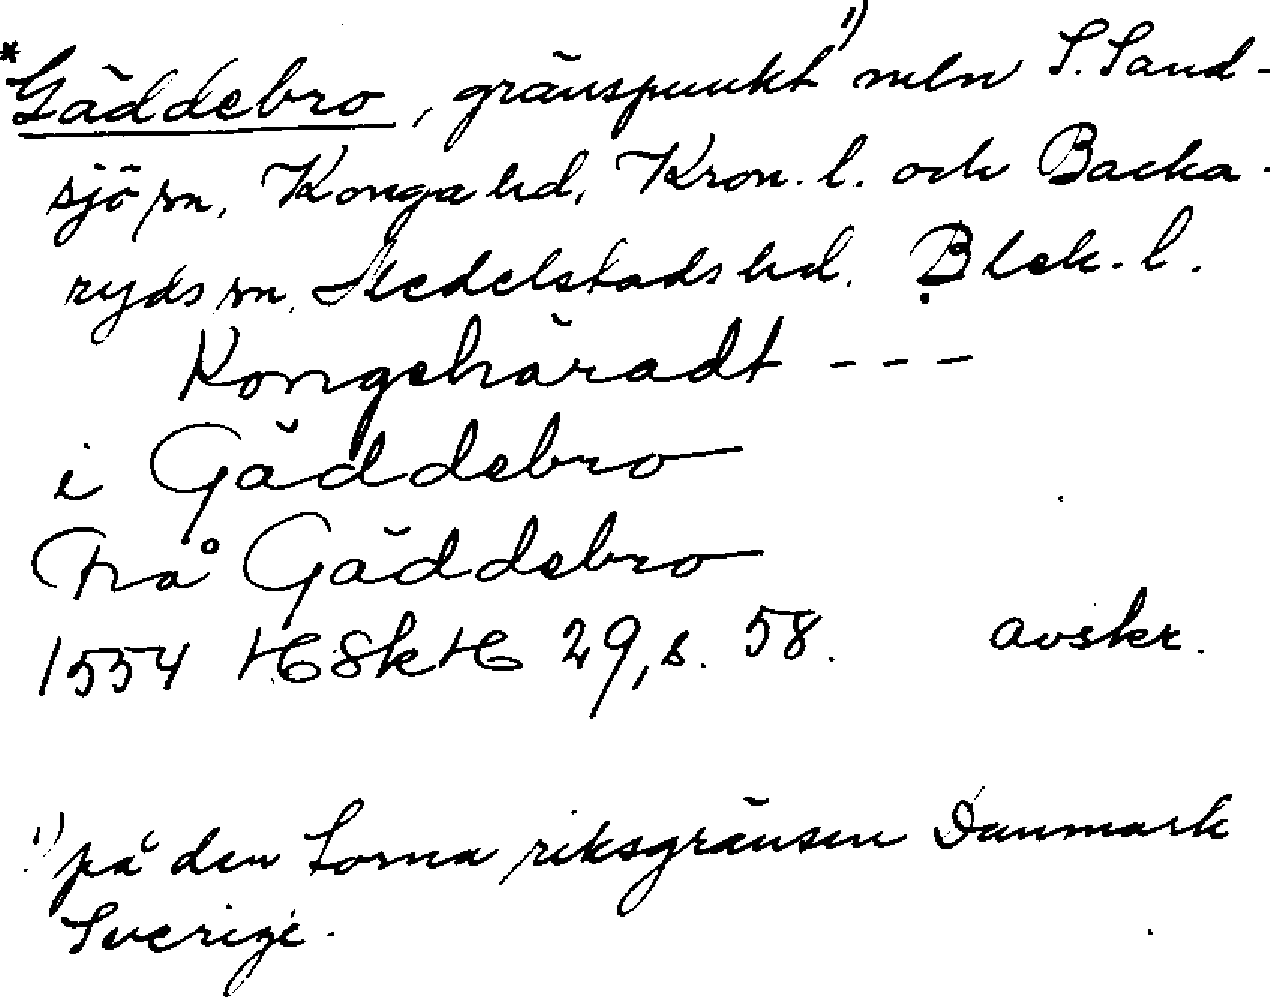 *Gäddebro, gränspunkt¹⁾ mln S. Sand-
sjö sn, Konga hd, Kron. l. och Backa-
ryds sn, Medelstads hd. Blek. l.
Kongehäradt - - -
i Gäddebro
Frå Gäddebro
1554 HSkH 29, s. 58. avskr.
¹⁾ på den forna riksgränsen Danmark
Sverige.